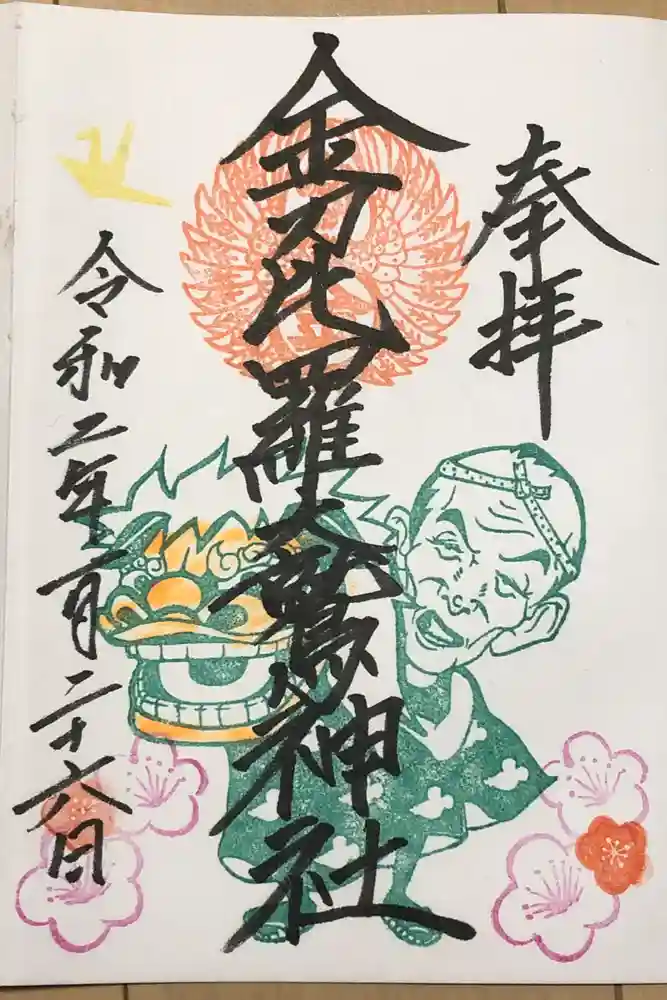 奉拝
金刀比羅大鷲神社
令和二年一月二十六日